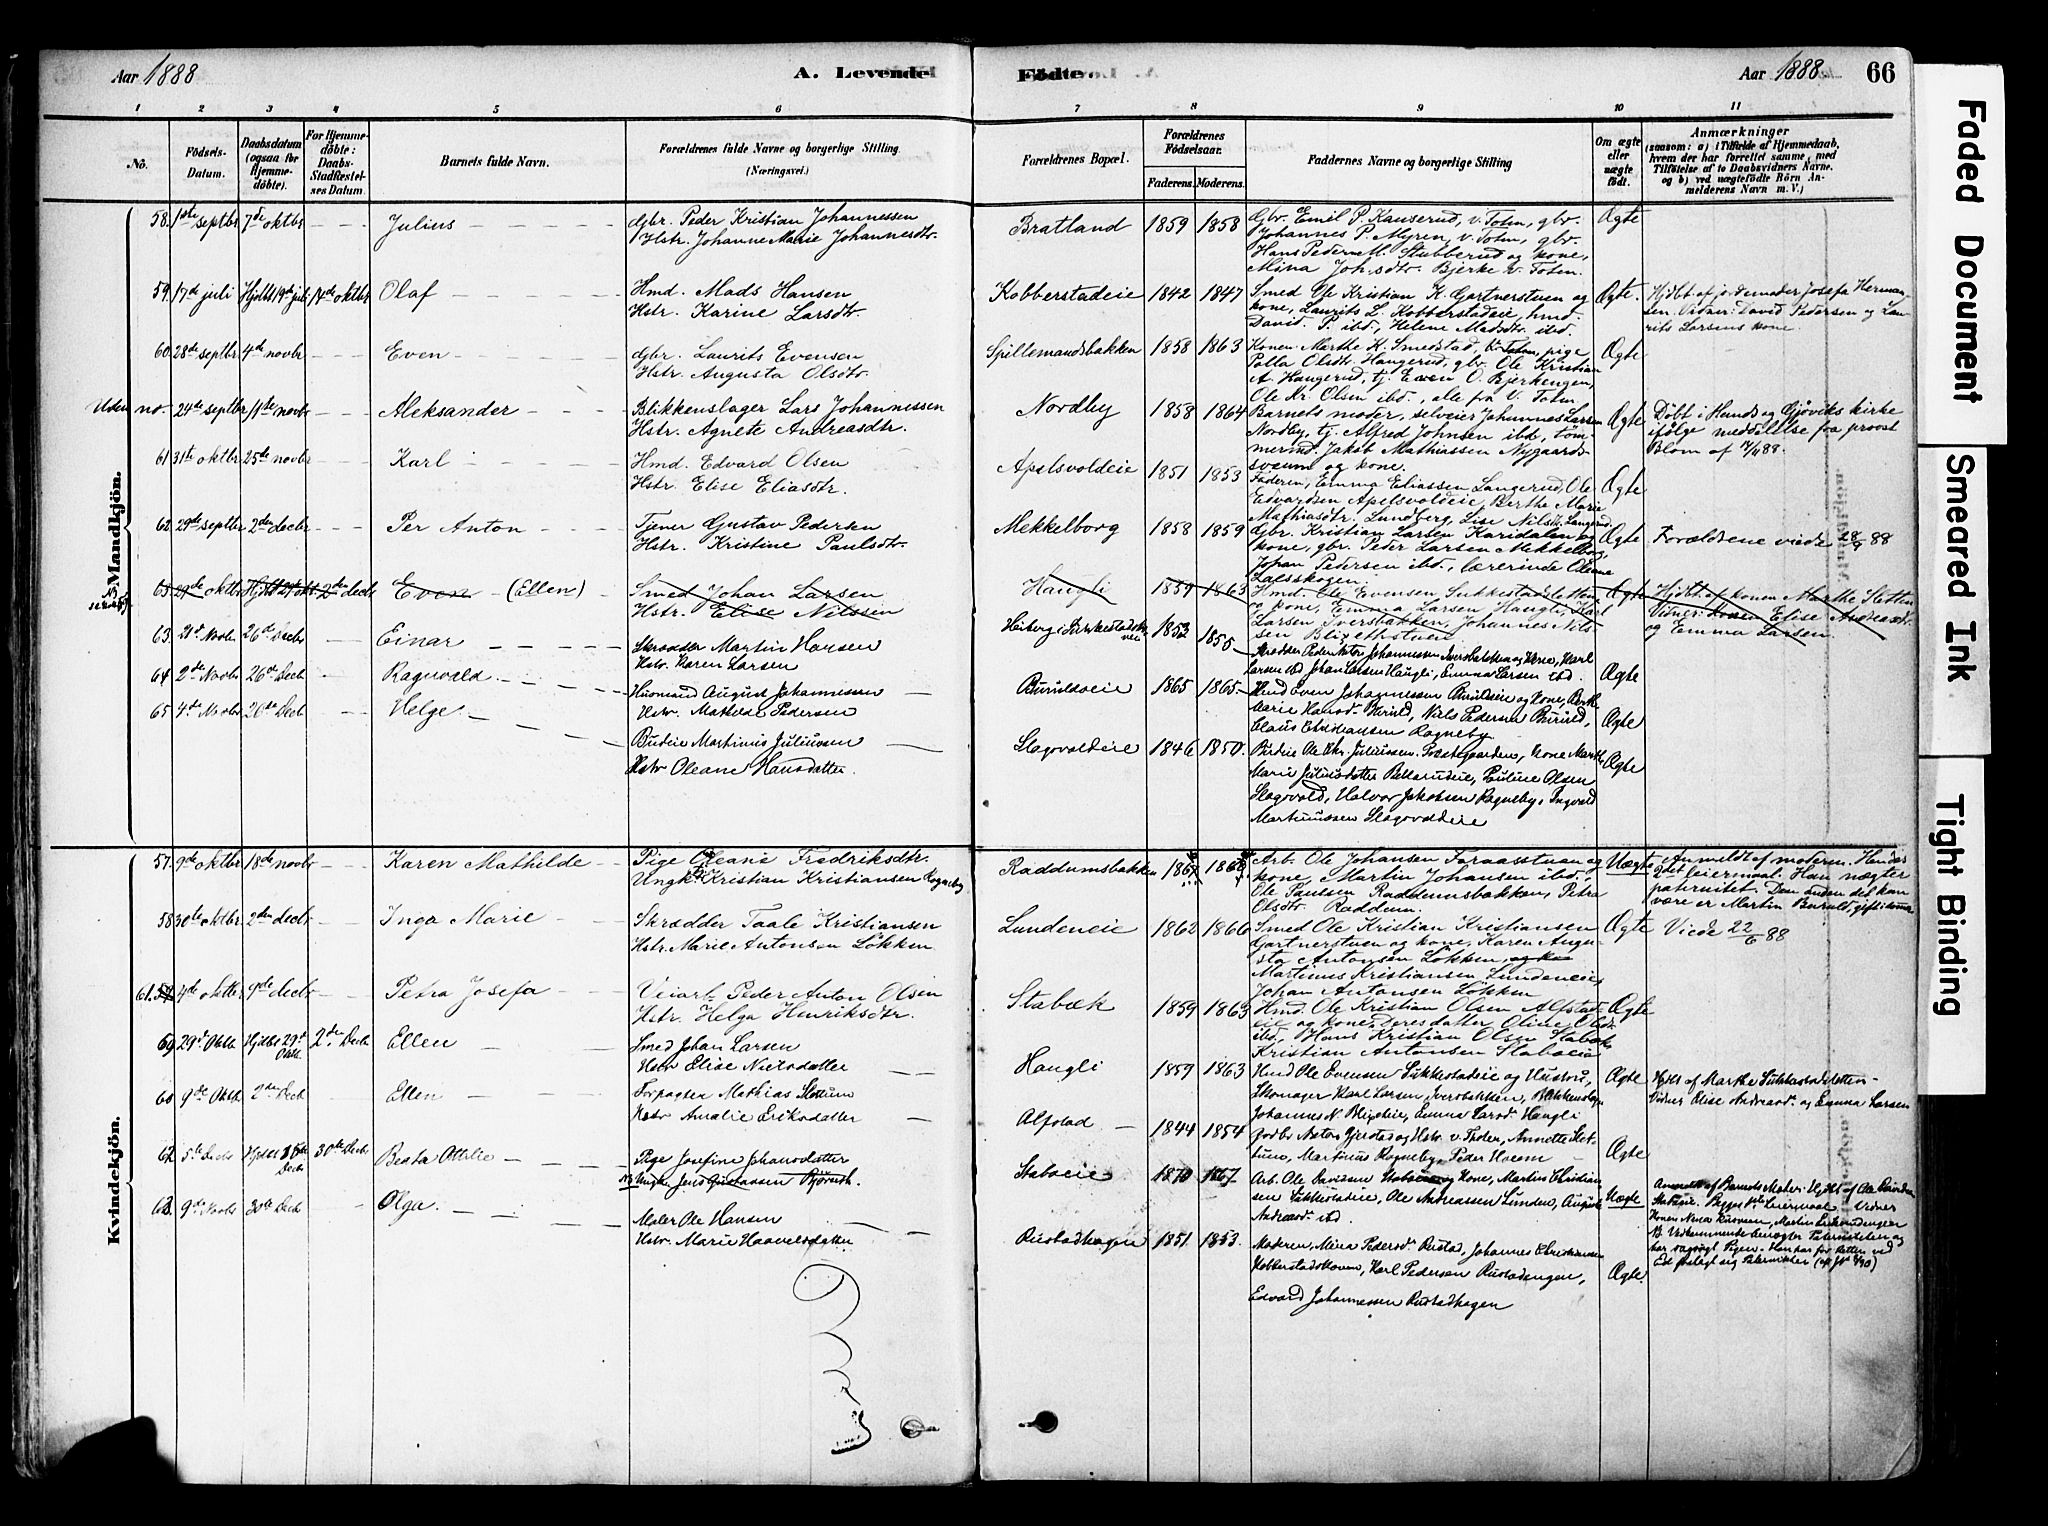 Aar 1888
A. Levende
Fødte
Aar 1888
66
1 2 3 4 5 6 7 8 9 10 11
No.
Fødsels-Datum.
Daabsdatum (ogsaa for Hjemmedöbte).
For Hjemmedöbte: Daabs-Stadfæstelses Datum.
Barnets fulde Navn.
Forældrenes fulde Navne og borgerlige Stilling (Næringsvei.)
Forældrenes Bopæl.
Forældrenes Födselsaar.
Faderens. Moderens.
Faddernes Navne og borgerlige Stilling
Om ægte eller uægte født.
Anmærkninger
(saasom: a) i Tilfælde af Hjemmedaab,
hvem der har forrettet samme, med
Tilföielse af to Daabsvidners Navne.
og b) ved uægtefödte Börn Anmelderens Navn m. V.)
Mandkjön.
58. 1ste septbr 7de oktbr Julius
Gbr. Peder Kristian Johannessen
Hstr. Johanne Marie Johannesdtr.
Bratland 1859 1858
Gbr. Emil P. Kauserud, v. Toten, gbr.
Johannes P. Myren, v. Toten, gbr.
Hans Pedersen M. Stubberud og kone,
Mina Joh.sdtr. Bjerke v. Toten.
Ægte
59. 17de juli Hjdbt 19de juli 14de oktbr Olaf
Hmd. Mads Hansen
Hstr. Karine Larsdtr.
Kobberstadeie 1842 1847
Smed Ole Kristian K. Gartnerstuen og
kone, Laurits L. Kobberstadeie, hmd.
David P. ibd., Helene Madsdtr. ibd.
Ægte.
Hjdbt af jordemoder Josefa Hermansen. Vidner: David Pedersen og Laurits Larsens kone.
60. 28de septbr 4de novbr Even
Gbr. Laurits Evensen
Hstr. Augusta Olsdtr.
Spillemandsbakken 1858 1863
Konen Marthe K. Smedstad, V. Toten, pige
Polla Olsdtr. Haugerud, gbr. Ole Kristian
A. Haugerud, tj. Even O. Bjerkengen,
Ole Kr. Olsen ibd., alle fra V. Toten.
Ægte
Uden no. 24de septbr 11te novbr Aleksander
Blikkenslager Lars Johannessen
Hstr. Agnete Andreasdtr.
Nordby 1858 1864
Barnets moder, selveier Johannes Larsen
Nordby, tj. Alfred Johnsen ibd., tömmermd. Jakob Mathiassen Nygaardssveum og kone.
Ægte
Döbt i Hunds og Gjöviks kirke
ifölge meddelelse fra provst
Blom af 14/11 88.
61. 31te oktbr 25de novbr Karl
Hmd. Edvard Olsen
Hstr. Elise Eliasdtr.
Apelsvoldeie 1851 1853
Faderen, Emma Eliassen Langerud, Ole
Edvardsen Apelsvoldeie, Berthe Marie
Mathiasdtr. Lundberg, Lise Nilsdtr. Langerud.
Ægte
62. 29de septbr 2den decbr Per Anton
Tjener Gustav Pedersen
Hstr. Kristine Paulsdtr.
Mekkelborg 1858 1859
Gbr. Kristian Larsen Karidalen og
kone, gbr. Peder Larsen Mekkelborg,
Johan Pedersen ibd., lærerinde Oleane
Laessskogen.
Ægte
Forældrene viede 28/9 88
63 29de oktbr Hjdbt 29de okt 2den decbr Even (Ellen)
Smed Johan Larsen
Hstr. Elise Nilssen
Haugli 1859 1863
Hmd. Ole Evensen, Sukkestadsletten
og kone, Emma Larsen Haugli, Karl
Larsen Iversbakken, Johannes Nilssen Blixethstuen
Ægte
Hjdbt af konen Marthe Sletten
Vidner: konen Elise Andreasdtr.
og Emma Larsen.
63. 21de Novbr 26de Decbr Einar
Skrædder Martin Hansen
Hstr. Karen Larsen
1852 1855
Skrædder Peder Anton Johannessen Iversbakken og Kone, Karl
Larsen ibd. Johan Larsen Haugli, Emma Larsen ibd.
Ægte
64 2de Novbr 26de Decbr Ragnvald
Husmand August Johannessen
Hstr. Mathilde Pedersen
Buruldseie 1865 1865
Hmd Even Johannessen Buruldseie og Kone, Berthe
Marie Hansdr. Burild, Niels Pedersen Burild,
Claus Christiansen Ragneby
Ægte
65 4de Novbr 26de Decbr Helge
Budeie Martinus Juliussen
Hstr Oleane Hansdatter.
Slagsvoldeie 1846 1850.
Budeie Ole Chr. Juliussen Præstegaarden, Kone Marthe
Marie Juliusdatter Bekkerudeie, Pauline Olsen
Slagsvold, Halvor Jakobsen Ragneby, Ingvald
Martinussen Slagsvoldeie
Ægte
Kvindekjön.
57. 9de oktbr 18de novbr Karen Mathilde
Pige Oleane Fredriksdtr.
Ungk. Kristian Kristiansen Ragneby
Raddumsbakken 1867 1868
Arb. Ole Johansen Foraasstuen og
kone, Martin Johansen ibd.,
Ole Paulsen Raddumsbakken, Petra
Olsdtr. Raddum.
Uægte
Anmeldt af moderen. Hendes
2det leiermaal. Han nægter
paternitet. Den anden det kan
være er Martin Buruld, gift
58 30te oktbr 2den decbr Inga Marie
Skrædder Taale Kristiansen
Hstr. Marie Antonsen Løkken
Lundeneie 1862 1866
Smed Ole Kristian Kristiansen
Gartnerstuen og kone, Karen Augusta Antonsen Løkken, og kone
Martinus Kristiansen Lundeneie,
Johan Antonsen Løkken
Ægte
Viede 22/6 88
61. 59 4de oktbr 9de decbr Petra Josefa
Veiarb. Peder Anton Olsen
Hstr. Helga Henriksdtr.
Stabæk 1859 1863
Hmd. Ole Kristian Olsen Alfstadeie og kone, Deres datter Oline Olsdtr
ibd., Hans Kristian Olsen Stabæk
Kristian Antonsen Stabæeie
Ægte
59 29de Oktb Hjdbt 29de Oktb. 2den Decbr Ellen
Smed Johan Larsen
Hstr Elise Nielsdatter
Haugli 1859 1863
Hmd Ole Evensen Sukkestadeie og Hustru,
Skomager Karl Larsen Iversbakken, Blikkenslager
Johannes N. Blixeie, Emma Larsdr. Haugli
Ægte
Hjdt af Marthe Sukkestadsletten.
Vidner Elise Andreasdr. og Emma Larsen
60 9de Oktb. 2den Decbr Ellen
Forpagter Mathias Slettum
Hstr Amalie Eriksdatter
Alfstad 1844 1854
Gaardbr Anton Gjerstad og Hstr v. Toten, Annette Slettum, Martinus Ragneby, Peder Hveem
Ægte
62 5te Decbr Decbr 30te Decbr Beata Ottilie
Pige Josefine Johansdatter
NB Ungk. Jens Gustavsen Bjørnsh.
Stabæeie 1870 1867
Arb. Ole Davidsen Stabæeie og Kone, Martin Christiansen Sukkestadeie, Ole Andreassen Lunden, Auguste
Andreasdr ibd
Uægte
Anmeldt af Barnets Moder. Hjdbt af Ole Davidsen
Stabæeie. Begges 1ste Leiermaal. Vidner
63. 9de Novbr 30te Decbr Olga.
Maler Ole Hansen
Hstr. Marie Haavelsdatter
Rustadhagen 1851 1853.
Moderen, Mina Pedersdr. Rustad, Johannes Christiansen
Kobberstadskoven, Karl Pedersen Rustadengen,
Edvard Johannessen Rustadhagen
Ægte.
Faded Document
Smeared Ink
Tight Binding